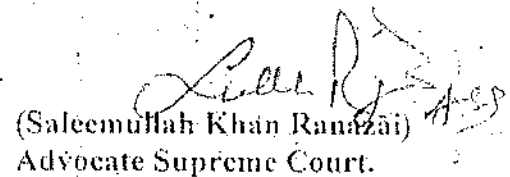 (Saleemullah Khan Ranazai)
Advocate Supreme Court.